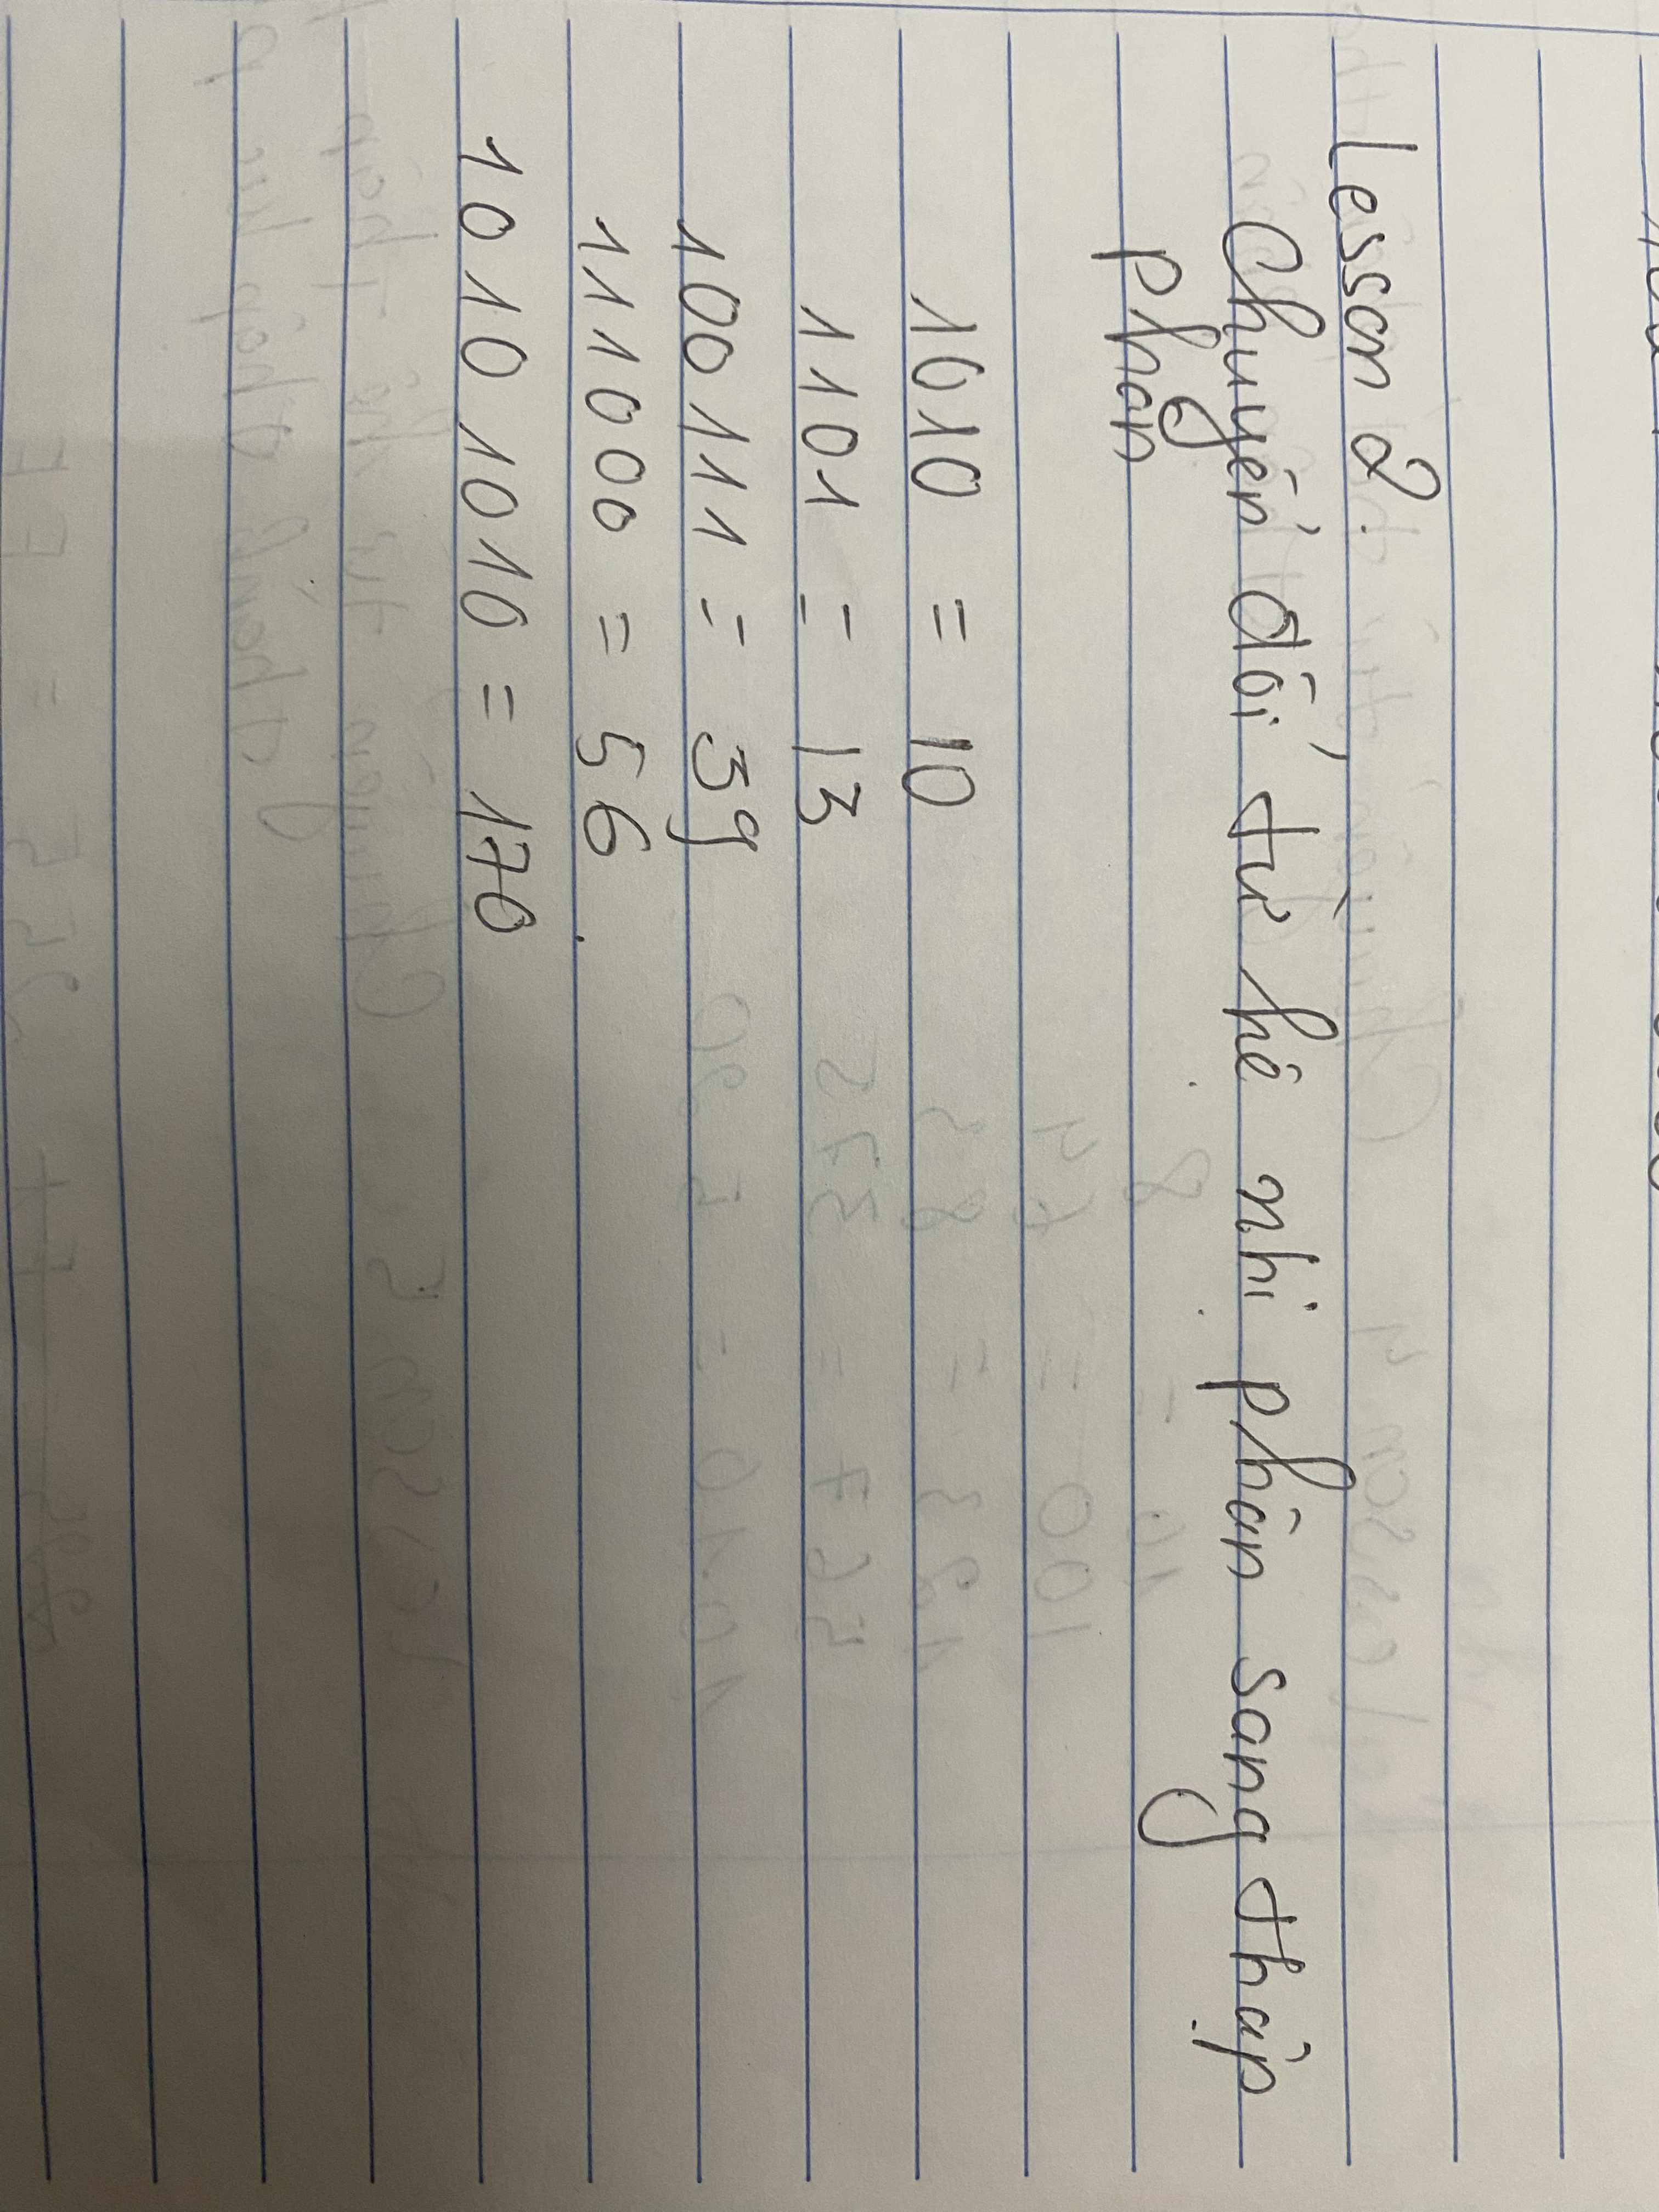 Lesson 2.
Chuyển đổi từ hệ nhị phân sang thập
phân
1010 = 10
1101 = 13
100111 = 39
111000 = 56
10101010 = 170